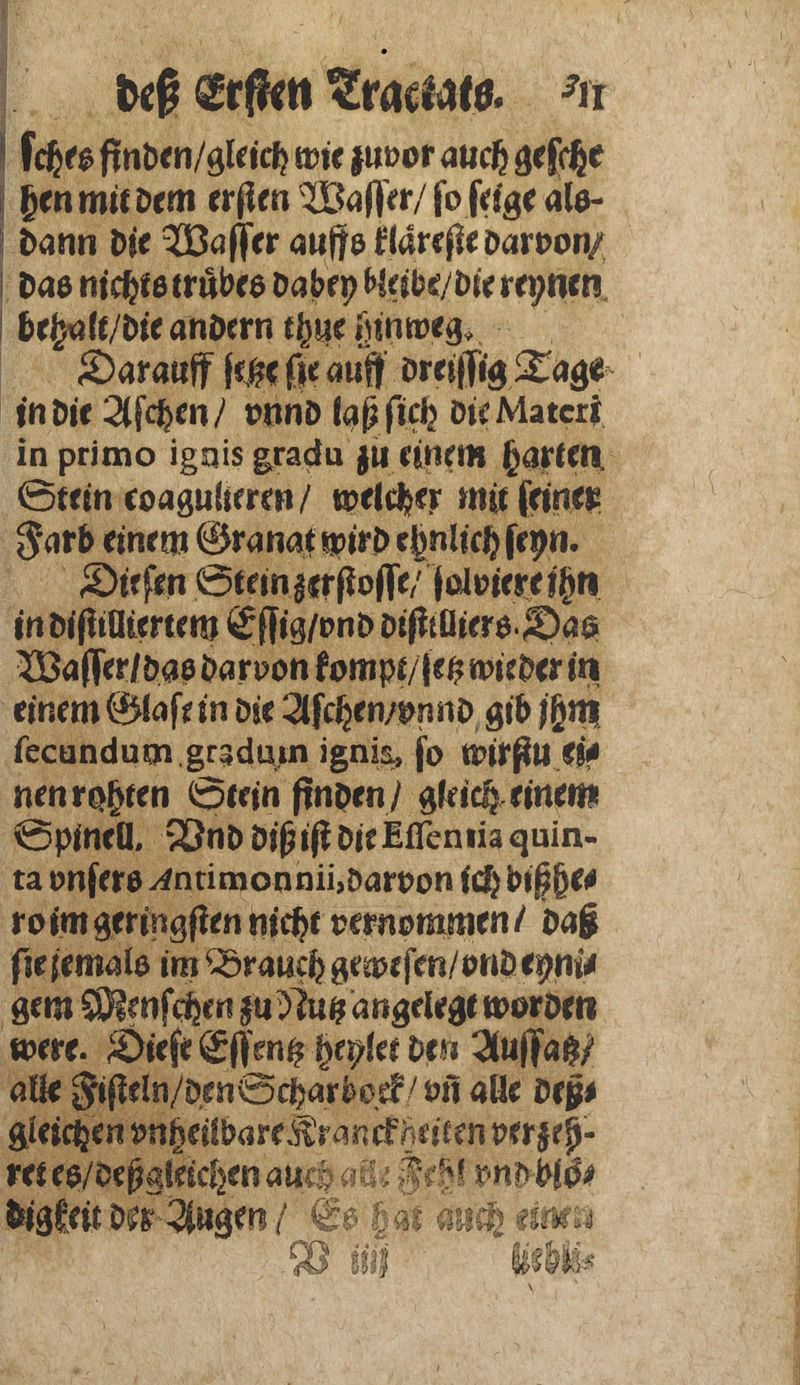 deß Ersten Tractats. 311
sches finden/gleich wie zuvor auch gesche
hen mit dem ersten Wasser/ so seige als-
dann die Wasser auffs kläreste darvon/
das nichts trübes dabey bleibe/die reynen
behalt/die andern thue hinweg.
Darauff setze sie auff dreissig Tage
in die Aschen/ vnnd laß sich die Materi
in primo ignis gradu zu einem harten
Stein coagulieren/ welcher mit seiner
Farb einem Granat wird ehnlich seyn.
Diesen Stein zerstosse/ solviere ihn
in distilliertem Essig/vnd distilliers. Das
Wasser/das darvon kompt/setz wieder in
einem Glase in die Aschen/vnnd gib jhm
secundum gradum ignis, so wirstu ei-
nen rohten Stein finden/ gleich einem
Spinell. Vnd diß ist die Essentia quin-
ta vnsers Antimonnii, darvon ich bißhe-
ro im geringsten nicht vernommen/ daß
sie jemals im Brauch gewesen/vnd eyni-
gem Menschen zu Nutz angelegt worden
were. Diese Essentz heylet den Aussatz/
alle Fisteln/den Scharbock/ vñ alle deß-
gleichen vnheilbare Kranckheiten verzeh-
ret es/deßgleichen auch alle Fehl vnd blö-
digkeit der Augen/ Es hat auch einen
V iiij liebli-